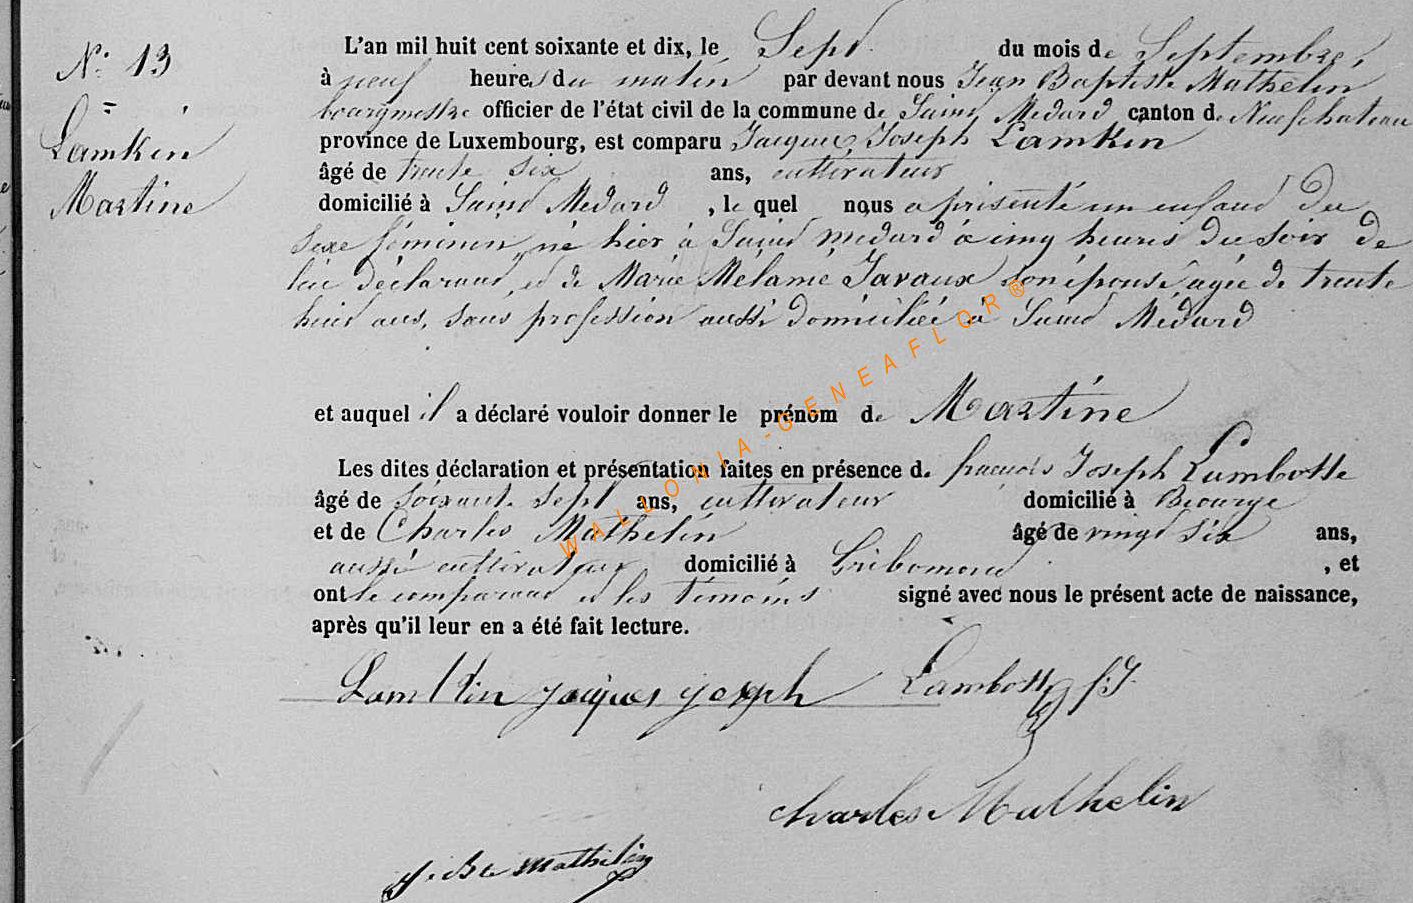 N° 13
Lamkin
Martine
L'an mil huit cent soixante et dix, le Sept du mois de Septembre,
à neuf heures du matin par devant nous Jean Baptiste Mathelin
bourgmestre officier de l'état civil de la commune de Saint Medard canton de Neufchateau
province de Luxembourg, est comparu Jacques Joseph Lamkin
âgé de trente six ans, cultivateur
domicilié à Saint Medard, le quel nous a présenté un enfant du
sexe féminin, né hier à Saint Medard à cinq heures du soir de
lui déclarant, et de Marie Mélanie Javaux son épouse agée de trente
huit ans, sans profession aussi domiciliée à Saint Médard
et auquel il a déclaré vouloir donner le prénom de Martine
Les dites déclaration et présentation faites en présence de francois Joseph Lambotte
âgé de soixante sept ans, cultivateur domicilié à Biourge
et de Charles Mathelin âgé de vingt six ans,
aussi cultivateur domicilié à Gribomont, et
ont le comparant et les témoins signé avec nous le présent acte de naissance,
après qu'il leur en a été fait lecture.
Lamkin jacques joseph Lambotte f.J.
charles Mathelin
J. Bte Mathelin
WALLONIA-GENEAFLOR®